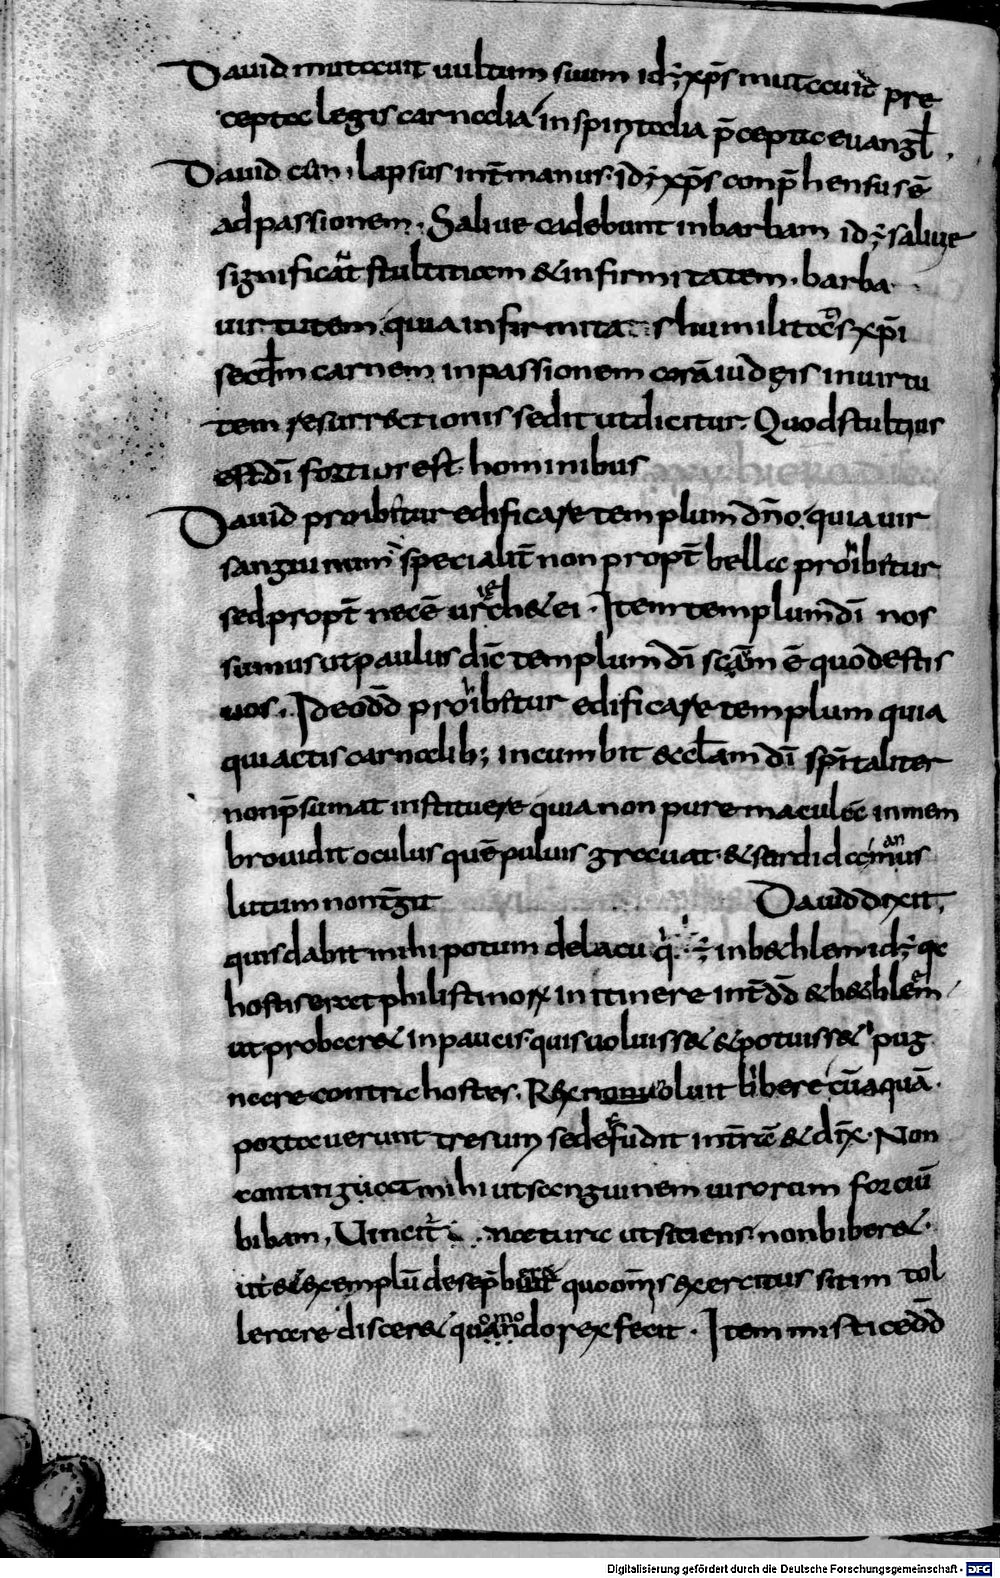 Dauid mutauit uultum suum id÷ xp̄s mutauit pre
cepta legis carnalia in spiritalia p̄cepta euangl̄.
Dauid lapsus int̄ manus id÷ xp̄s conp̄hensus ē
ad passionem. Saliue cadebunt in barbam id÷ saliue
significat̄ stultitiam & infirmitatem. barba
uirtutem. quia infirmita s humilitatis xp̄i
secd̄m carnem in passionem corā iudeis in uirtu
tem resurrectionis sedit ut dicitur. Quod stultius
est dī fortius est hominibus
Dauid proibitur edificare templum dn̄o. quia uir
sanguinum specialit̄ non propt̄ bella prohibitur
sed propt̄ necē uriae & ei. Item templum dī nos
sumus ut paulus dic̄ templum dī sc̄m ē quod estis
uos. Ideo dd̄ prohibitur edificare templum quia
qui actis carnalib; incumbit eccl̄am dī sp̄italiter
non p̄sumat instituere quia non pure maculā in mem
bro uidit oculus quē puluis grauat. & sordida manus
lutum non t̄git Dauid dixit,
quis dabit mihi potum de lacu q̄ ÷ in bethleem id÷ qa
hostis erat philistinorum in itinere int̄ dd̄ & bethleem
ut probaret in paucis. quis uoluisset & potuisset pug
nare contra hostes. Rex non uoluit bibere cū aquā.
portauerunt tres uiri sed effudit in t̄rā & dix̄. Non
contingat mihi ut sanguinem uirorum forciū
bibam. Uincit̄ natura ut sitiens non biberet.
ut exemplū de se p̄beret quo om̄s exercitus sitim tol
lerare disceret quomodo rex fecit. Item mistice dd̄